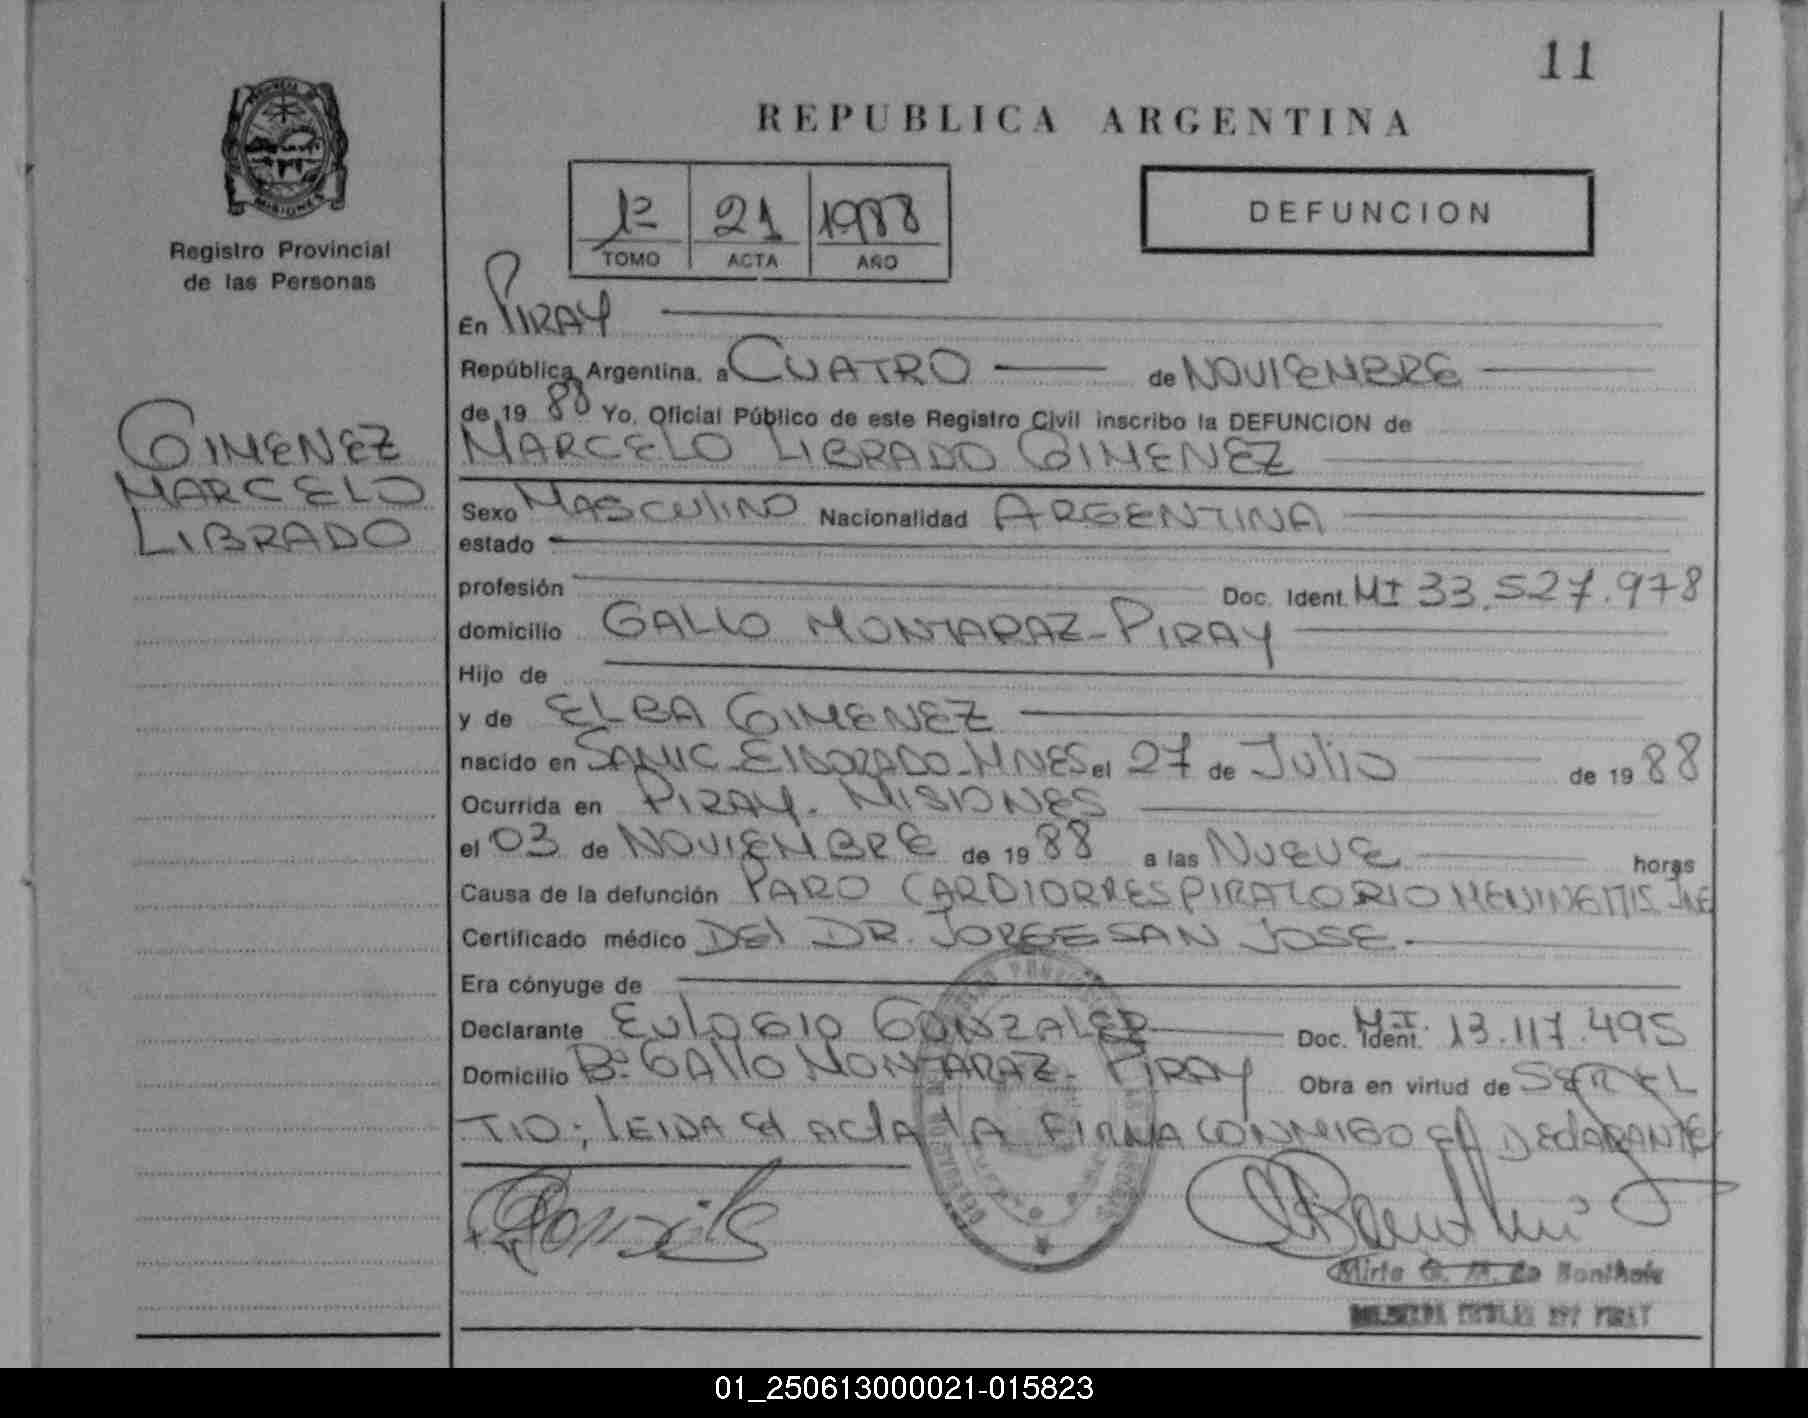 11
REPUBLICA ARGENTINA
PROVINCIA DE
MISIONES
Registro Provincial
de las Personas
1º 21 1988
TOMO ACTA AÑO
DEFUNCION
En PIRAY
República Argentina, a CUATRO de NOVIEMBRE
de 19 88 Yo, Oficial Público de este Registro Civil inscribo la DEFUNCION de
GIMENEZ
MARCELO
LIBRADO
MARCELO LIBRADO GIMENEZ
Sexo MASCULINO Nacionalidad ARGENTINA
estado
profesión Doc. Ident. MI 33.527.978
domicilio GALLO MONTARAZ-PIRAY
Hijo de
y de ELBA GIMENEZ
nacido en SAMIC-ELDORADO-MNES el 27 de Julio de 19 88
Ocurrida en PIRAY. MISIONES
el 03 de NOVIEMBRE de 19 88 a las NUEVE horas
Causa de la defunción PARO CARDIORRESPIRATORIO MENINGITIS
Certificado médico DEl DR. JORGE SAN JOSE.
Era cónyuge de
Declarante EULOGIO GONZALEZ Doc. Ident. M.I. 13.117.495
Domicilio Bº GAllO MONTARAZ- PIRAY Obra en virtud de SER EL
TIO; lEIDA El ACTA lA FIRMA CONMIGO El DEClARANTE
Mirta G. M. de
01_250613000021-015823